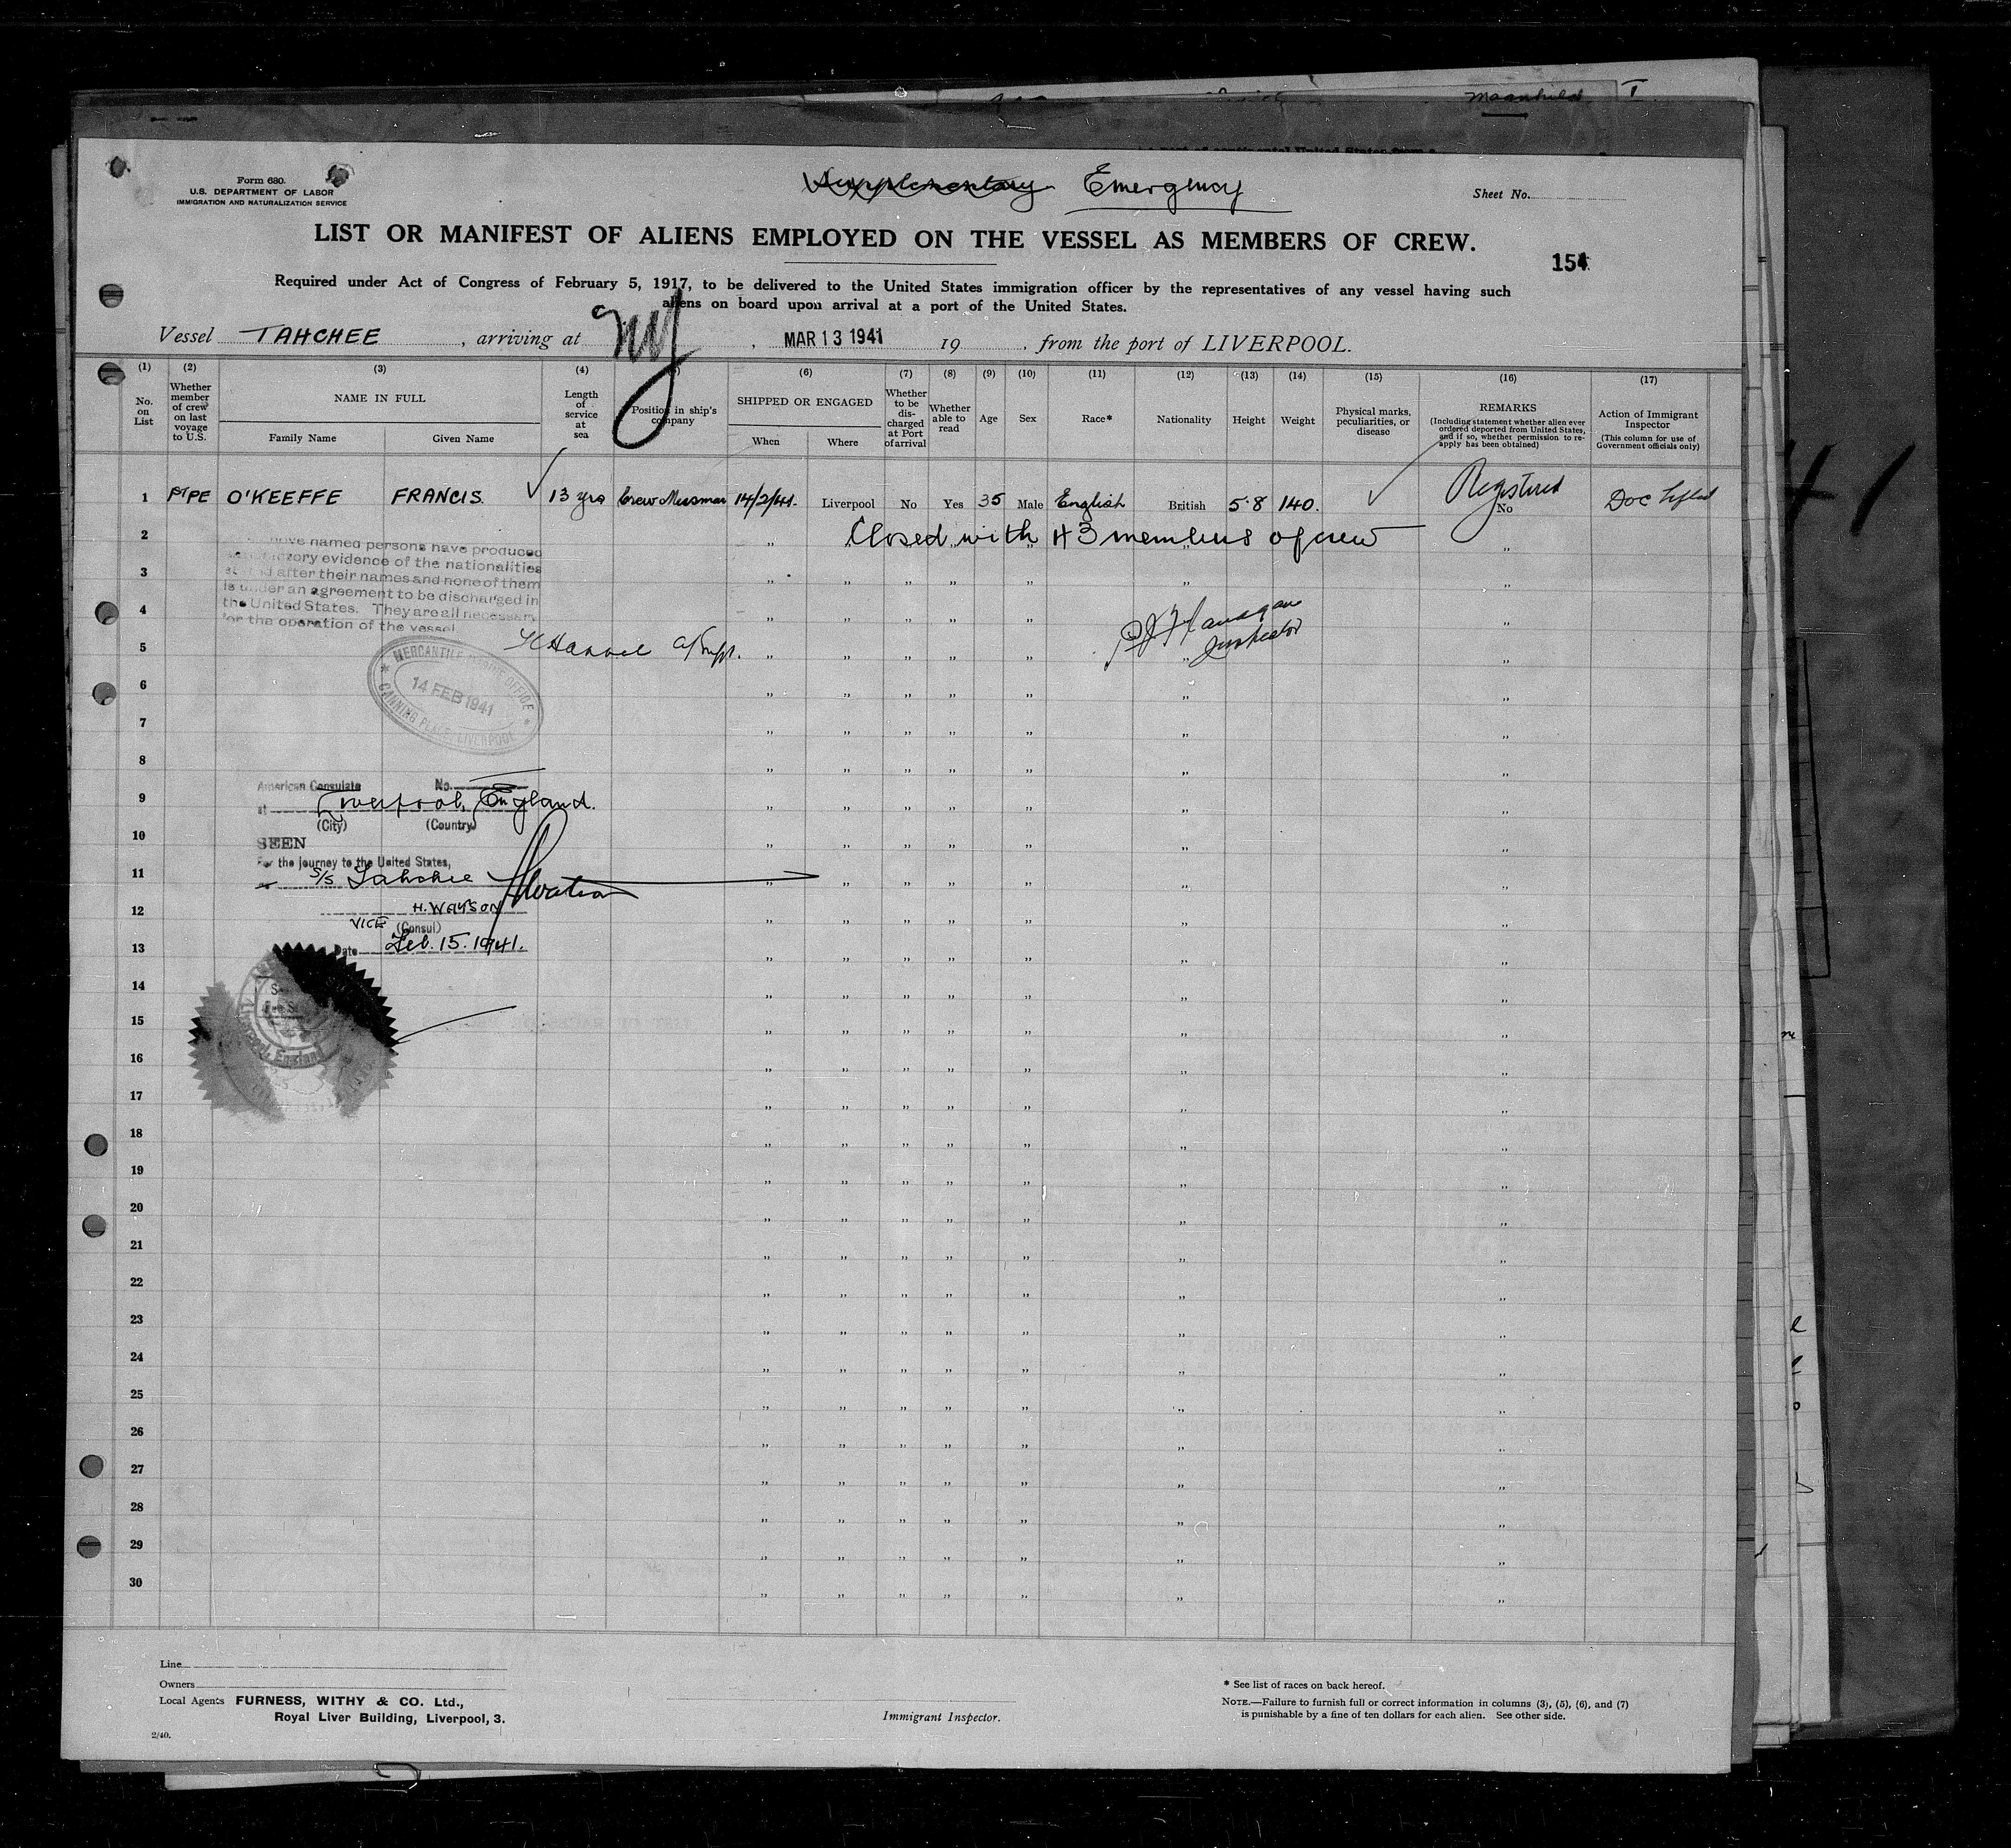 Form 680.
U.S. DEPARTMENT OF LABOR
IMMIGRATION AND NATURALIZATION SERVICE
Supplementary Emergency
Sheet No.
LIST OR MANIFEST OF ALIENS EMPLOYED ON THE VESSEL AS MEMBERS OF CREW.
154
Required under Act of Congress of February 5, 1917, to be delivered to the United States immigration officer by the representatives of any vessel having such
aliens on board upon arrival at a port of the United States.
Vessel TAHCHEE , arriving at NY , MAR 13 1941 19 , from the port of LIVERPOOL.
(1) (2) (3) (4) (6) (7) (8) (9) (10) (11) (12) (13) (14) (15) (16) (17)
No. on List
Whether member of crew on last voyage to U.S.
NAME IN FULL
Family Name Given Name
Length of service at sea
Position in ship's company
SHIPPED OR ENGAGED
When Where
Whether to be discharged at Port of arrival
Whether able to read
Age
Sex
Race*
Nationality
Height
Weight
Physical marks, peculiarities, or disease
REMARKS
(Including statement whether alien ever ordered deported from United States, and if so, whether permission to re-apply has been obtained)
Action of Immigrant Inspector
(This column for use of Government officials only)
1 O'KEEFFE FRANCIS. 13 yrs Crew Messman 14/2/41. Liverpool No Yes 35 Male English British 5.8 140. Registered No Doc Lifted
2 Closed with 43 members of crew
have named persons have produced
satisfactory evidence of the nationalities
after their names and none of them
is under an agreement to be discharged in
the United States. They are all necessary
for the operation of the vessel
3
4
5
Inspector
MERCANTILE MARINE OFFICE
14 FEB 1941
CANNING PLACE, LIVERPOOL
6
7
8
American Consulate No.
9
at Liverpool, England.
(City) (Country)
10
SEEN
For the journey to the United States,
11
S/S Tahchee
12
H. WATSON
VICE (Consul)
13
Date Feb. 15. 1941.
14
15
Liverpool, England
16
17
18
19
20
21
22
23
24
25
26
27
28
29
30
Line
Owners
Local Agents FURNESS, WITHY & CO. Ltd.,
Royal Liver Building, Liverpool, 3.
2/40.
Immigrant Inspector.
* See list of races on back hereof.
NOTE.—Failure to furnish full or correct information in columns (3), (5), (6), and (7)
is punishable by a fine of ten dollars for each alien. See other side.